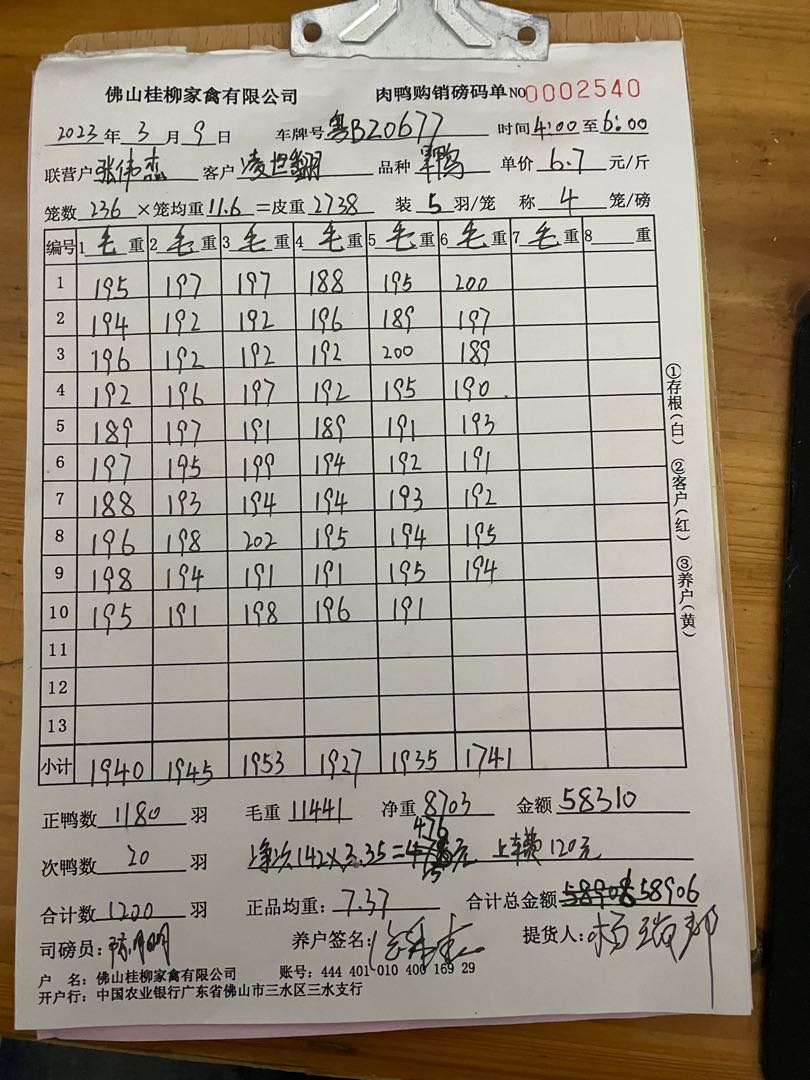 佛山桂柳家禽有限公司 肉鸭购销磅码单 NO0002540
2023年3月9日 车牌号粤BZ0677 时间4:00至6:00
联营户张伟峦 客户 品种 单价6.7元/斤
笼数236×笼均重11.6=皮重2738 装5羽/笼 称4笼/磅
编号 1毛重 2毛重 3毛重 4毛重 5毛重 6毛重 7毛重 8重
1 195 197 197 188 195 200
2 194 192 192 196 189 197
3 196 192 192 192 200 189
4 192 196 197 192 195 190.
5 189 197 191 189 191 193
6 197 195 199 194 192 191
7 188 193 194 194 193 192
8 196 198 202 195 194 195
9 198 194 191 191 195 194
10 195 191 198 196 191
11
12
13
小计 1940 1945 1953 1927 1935 1741
①存根(白) ②客户(红) ③养户(黄)
正鸭数1180羽 毛重11441 净重8703 金额58310
476
次鸭数20羽 净次142×3.35= 元 上车费120元
合计数1200羽 正品均重:7.37 合计总金额58908 58906
司磅员: 养户签名: 提货人:
户 名:佛山桂柳家禽有限公司 账号:444 401 010 400 169 29
开户行:中国农业银行广东省佛山市三水区三水支行